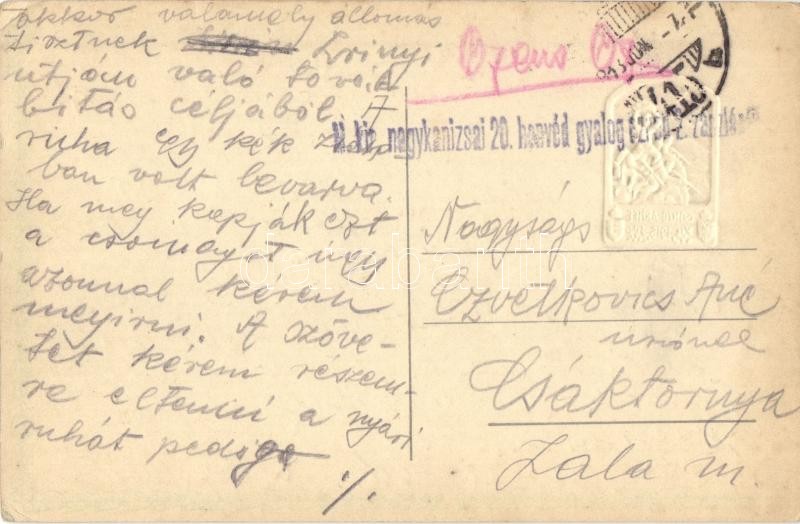 akkor valamely állomás
tisztnek Zrinyi
útján való továb
bitás céljából. A
ruha egy kék zsák
ban volt bevarva.
Ha meg kapják ezt
a csomagot úgy
azonnal kérem
megirni. A szöve-
tet kérem részem-
re eltenni a nyári
ruhát pedig
./.
M. kir. nagykanizsai 20. honvéd gyalog
Nagysá­gs
Czvetkovics Ané
úrnőnek
Csáktornya
Zala m.
darabanth